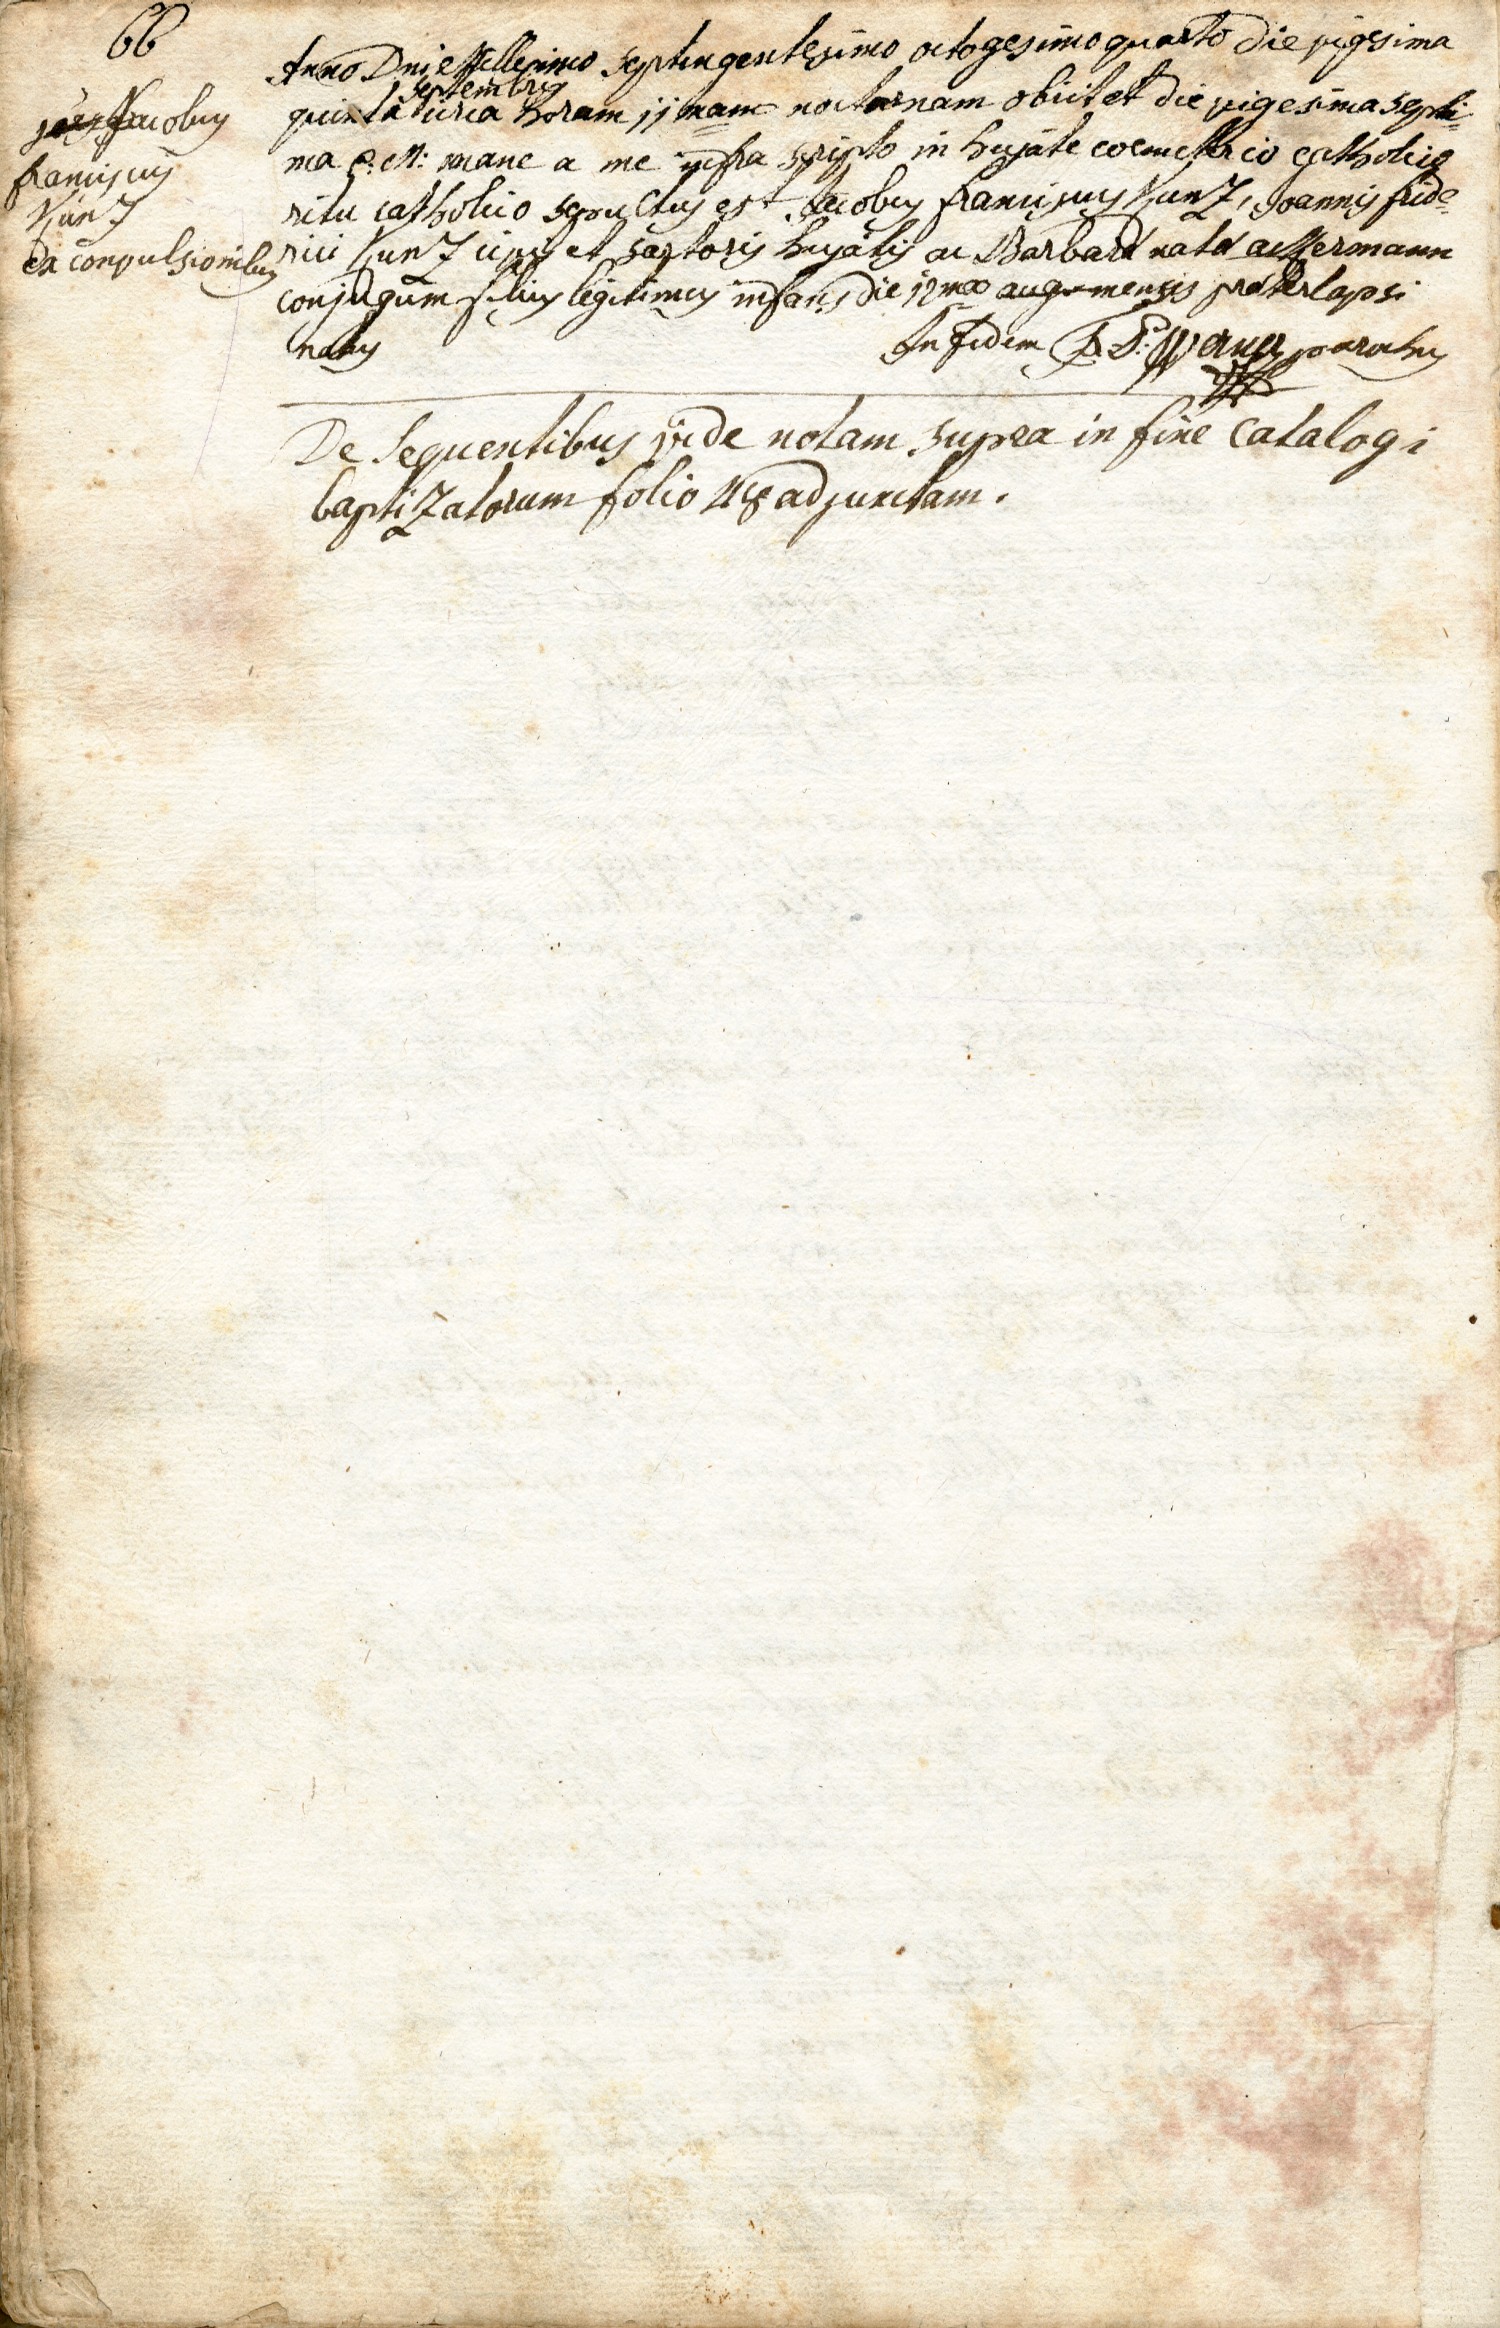 66
Jacobus
franciscus
Kunz
ex conpulsionibus
Anno Dni Millesimo septingentesimo octogesimo quarto die vigesima
septembris
quinta circa horam 11mam nocturnam obiit et die vigesima septi-
ma e: M: mane a me infra scripto in hujate coemeterio catholico
ritu catholico sepultus est Jacobus franciscus Kunz, Joannis fride-
rici Kunz civis et sartoris hujatis ac Barbara nata ackermann
conjugum filius legitimus infans die 12ma aug. mensis praeterlapsi
natus
In fidem parochus
De sequentibus vide notam supra in fine Catalogi
baptizatorum folio adjunctam.